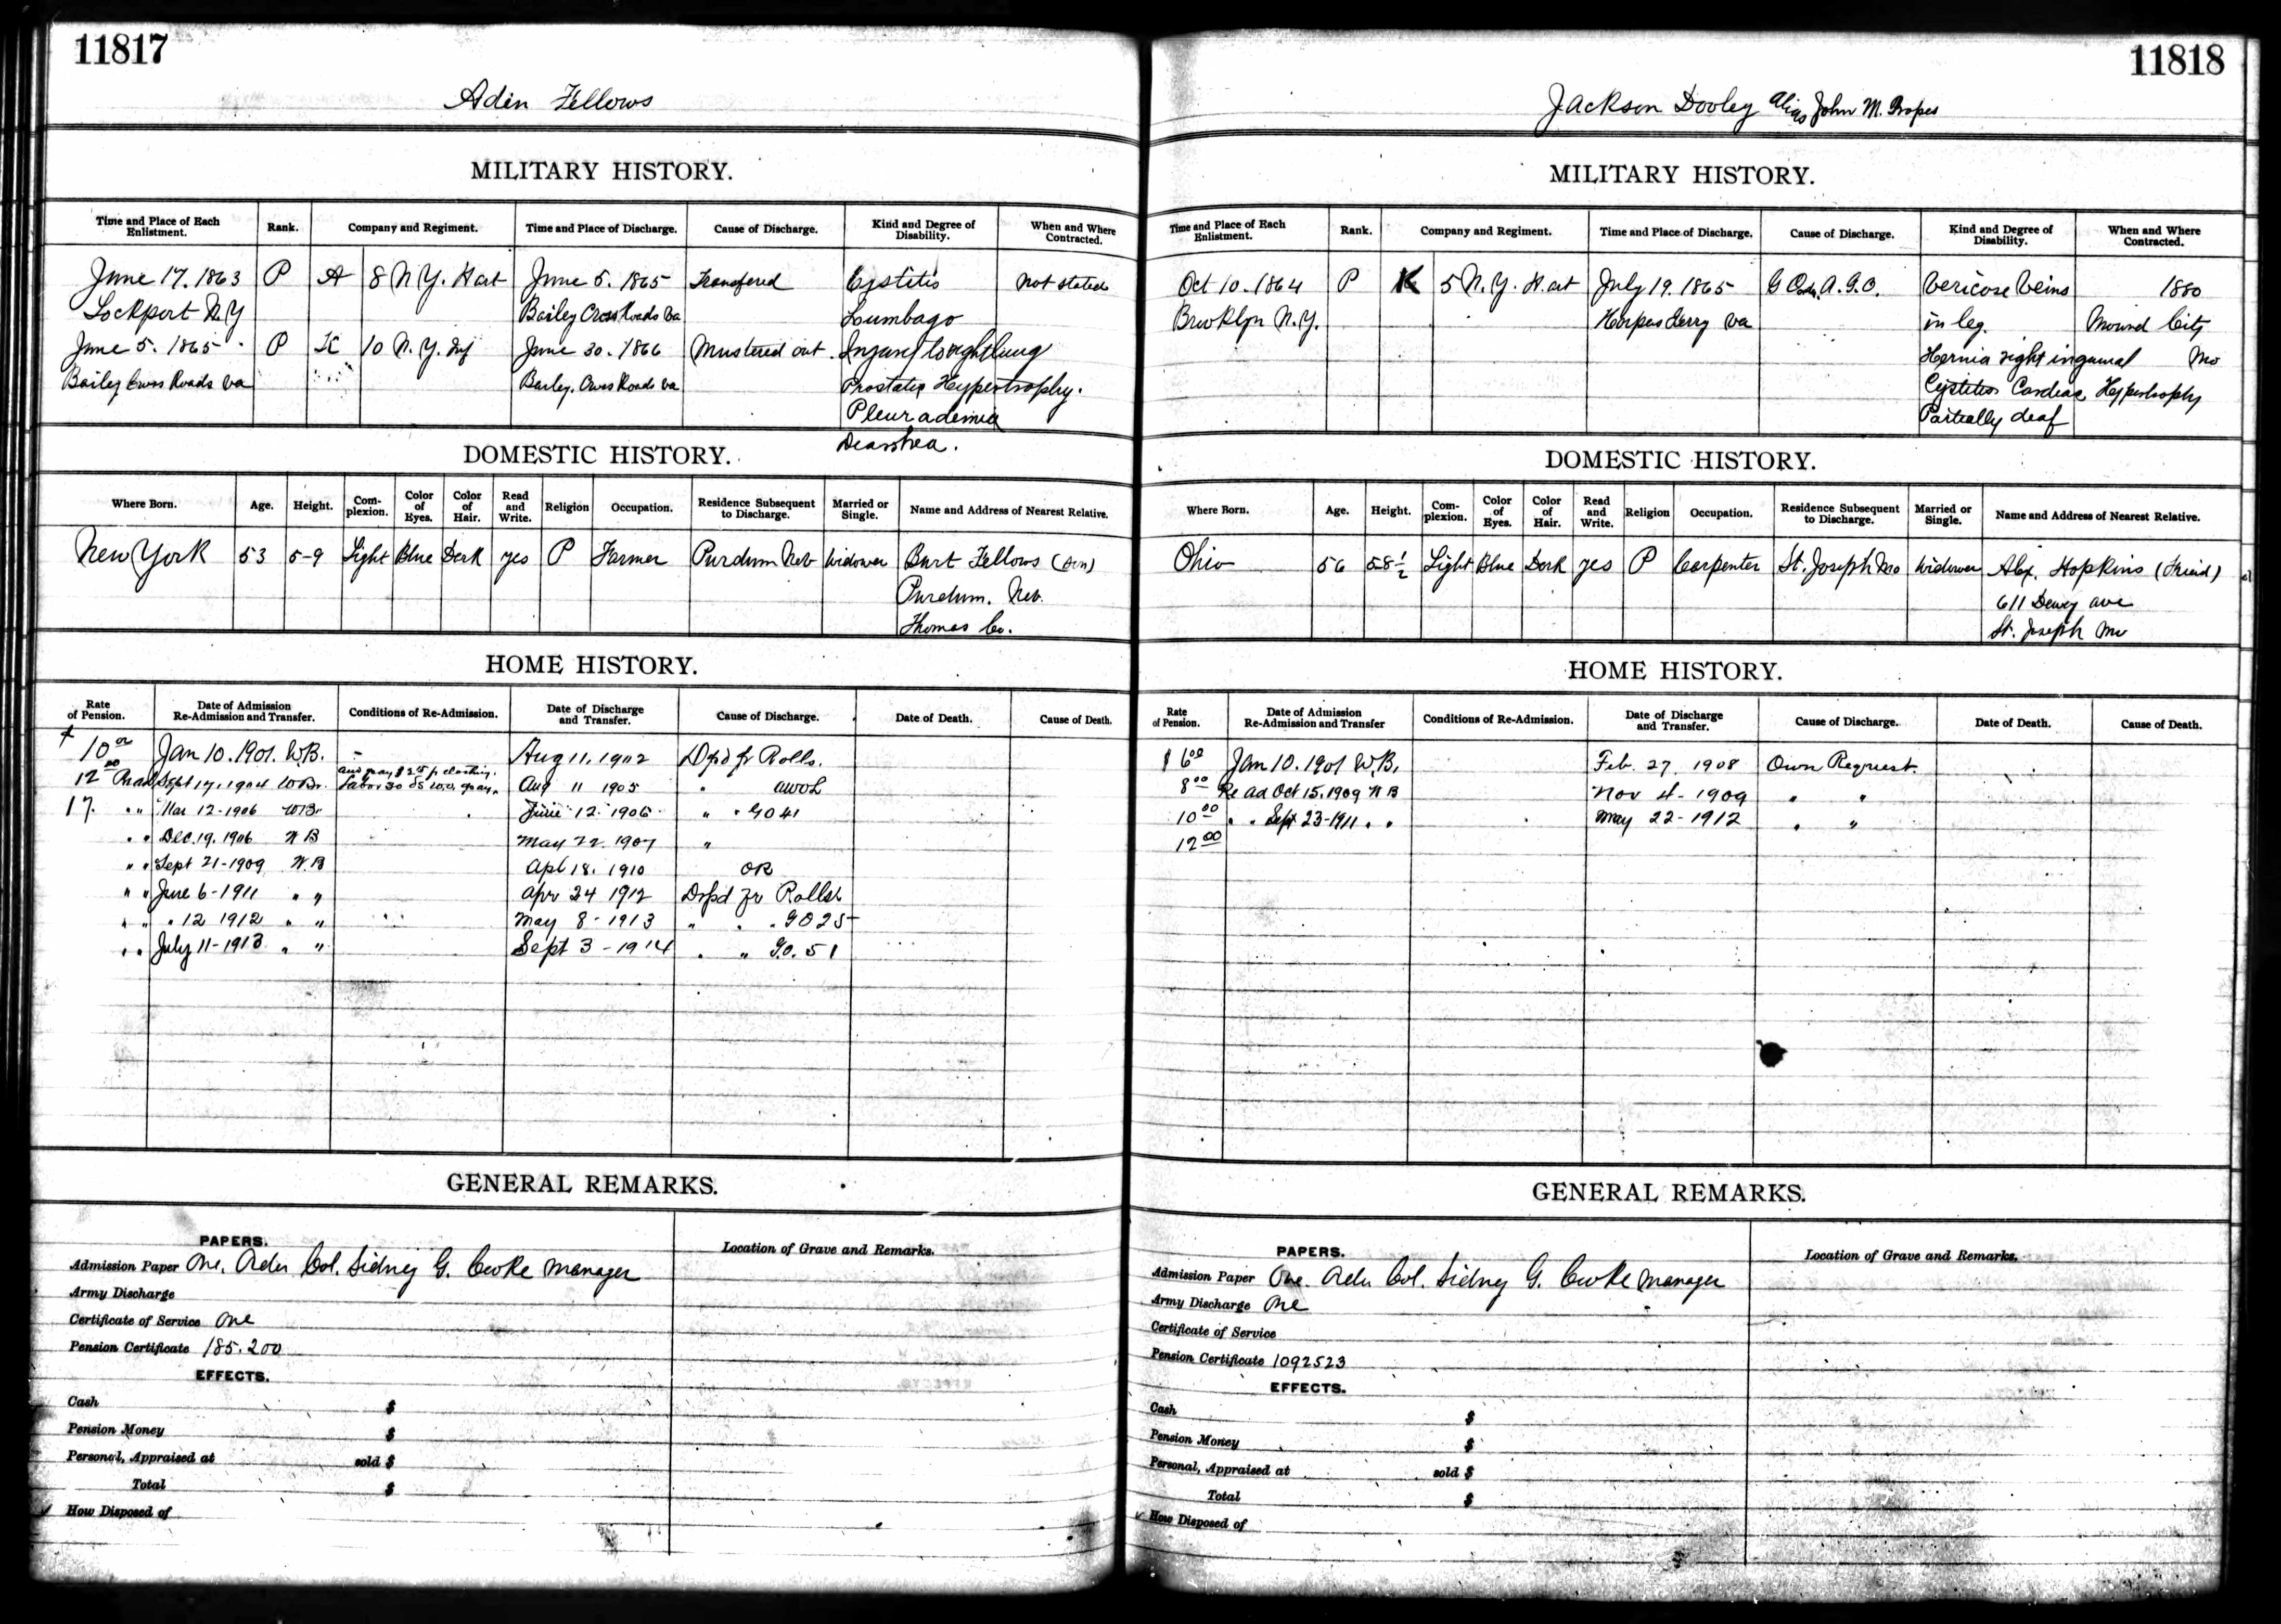 11817
Adin Fellows
MILITARY HISTORY.
Time and Place of Each Enlistment. Rank. Company and Regiment. Time and Place of Discharge. Cause of Discharge. Kind and Degree of Disability. When and Where Contracted.
June 17. 1863 P A 8 N.Y. H art June 5. 1865 Transfered Cystitis Not stated
Lockport N.Y Bailey Cross Roads Va Lumbago
June 5. 1865 P K 10 N.Y. Inf June 30. 1866 Mustered out. Injury to right lung
Bailey Cross Roads Va Bailey. Cross Roads Va Prostatic Hypertrophy.
Pleurademia
Diarrhea.
DOMESTIC HISTORY.
Where Born. Age. Height. Com-plexion. Color of Eyes. Color of Hair. Read and Write. Religion Occupation. Residence Subsequent to Discharge. Married or Single. Name and Address of Nearest Relative.
New York 53 5-9 Light Blue Dark yes P Farmer Purdum Neb Widower Burt Fellows (Son)
Purdum. Neb.
Thomas Co.
HOME HISTORY.
Rate of Pension. Date of Admission Re-Admission and Transfer. Conditions of Re-Admission. Date of Discharge and Transfer. Cause of Discharge. Date of Death. Cause of Death.
10 00 Jan 10. 1901. W.B. - Aug 11, 1902 Dpd fr Rolls.
12 00 Read Sept 17, 1904 W.Br. Aug 11 1905 " AWOL
17. " " Mar 12-1906 W.Br June 12 1906 " " GO 41
" " Dec. 19. 1906 W B May 22 1907 "
" " Sept 21-1909 W.B Apl 18. 1910 OR
" " June 6-1911 " " Apr 24 1912 Drpd fr Rolls
" " " 12 1912 " " May 8-1913 " " GO 25
" " July 11-1913 " " Sept 3-1914 " " G.O. 51
GENERAL REMARKS.
PAPERS.
Location of Grave and Remarks.
Admission Paper One. Order Col. Sidney G. Cooke Manager
Army Discharge
Certificate of Service One
Pension Certificate 185.200
EFFECTS.
Cash $
Pension Money $
Personal, Appraised at sold $
Total $
How Disposed of
11818
Jackson Dooley alias John M. Propes
MILITARY HISTORY.
Time and Place of Each Enlistment. Rank. Company and Regiment. Time and Place of Discharge. Cause of Discharge. Kind and Degree of Disability. When and Where Contracted.
Oct 10. 1864 P K 5 N.Y. H. art July 19. 1865 G Ods. A.G.O. Vericose Veins 1880
Brooklyn N.Y. Harpers Ferry Va in leg. Mound City
Hernia right inguinal Mo
Cystitis Cardiac Hypertrophy
Partially deaf
DOMESTIC HISTORY.
Where Born. Age. Height. Com-plexion. Color of Eyes. Color of Hair. Read and Write. Religion Occupation. Residence Subsequent to Discharge. Married or Single. Name and Address of Nearest Relative.
Ohio 56 5-8 1/2 Light Blue Dark yes P Carpenter St. Joseph Mo Widower Alex. Hopkins (Friend)
611 Dewey ave
St. Joseph Mo
HOME HISTORY.
Rate of Pension. Date of Admission Re-Admission and Transfer Conditions of Re-Admission. Date of Discharge and Transfer. Cause of Discharge. Date of Death. Cause of Death.
$ 6 00 Jan 10. 1901 W.B. Feb. 27. 1908 Own Request.
8 00 Re ad Oct 15. 1909 W B Nov 4-1909 " "
10 00 " " Sept 23-1911 " " May 22-1912 " "
12 00
GENERAL REMARKS.
PAPERS.
Location of Grave and Remarks.
Admission Paper One. Order Col. Sidney G. Cooke Manager
Army Discharge One
Certificate of Service
Pension Certificate 1092523
EFFECTS.
Cash $
Pension Money $
Personal, Appraised at sold $
Total $
How Disposed of